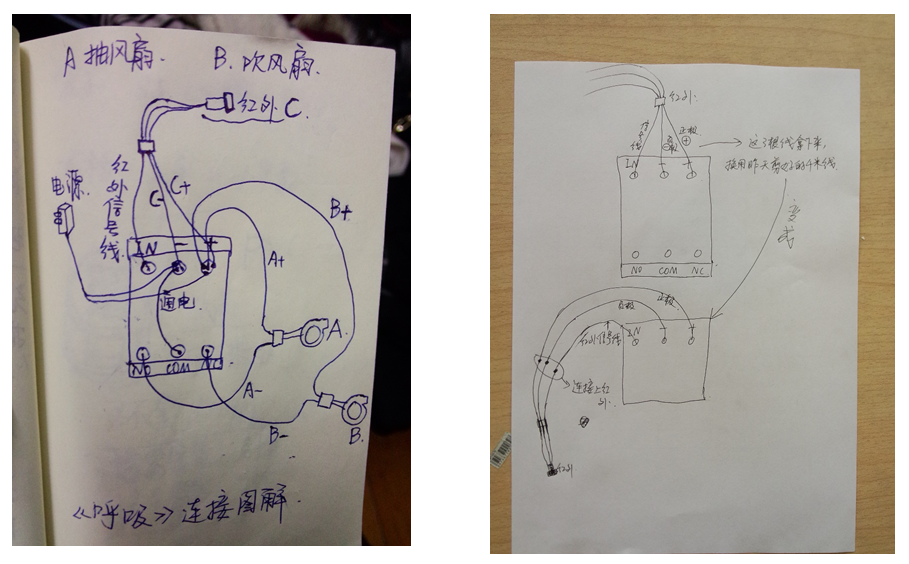 A 抽风扇.
B. 吹风扇.
红外 C.
电源.
红外信号线.
C-
C+
B+
IN - +
A+
通电.
A.
NO COM NC
A-
B-
B.
《呼吸》连接图解.
红外.
信号线
负极
正极
这3根线拿下来,
换用昨天剪好的8米线.
IN - +
NO COM NC
变成
负极
正极
IN - +
红外信号线
连接上红外.
红外